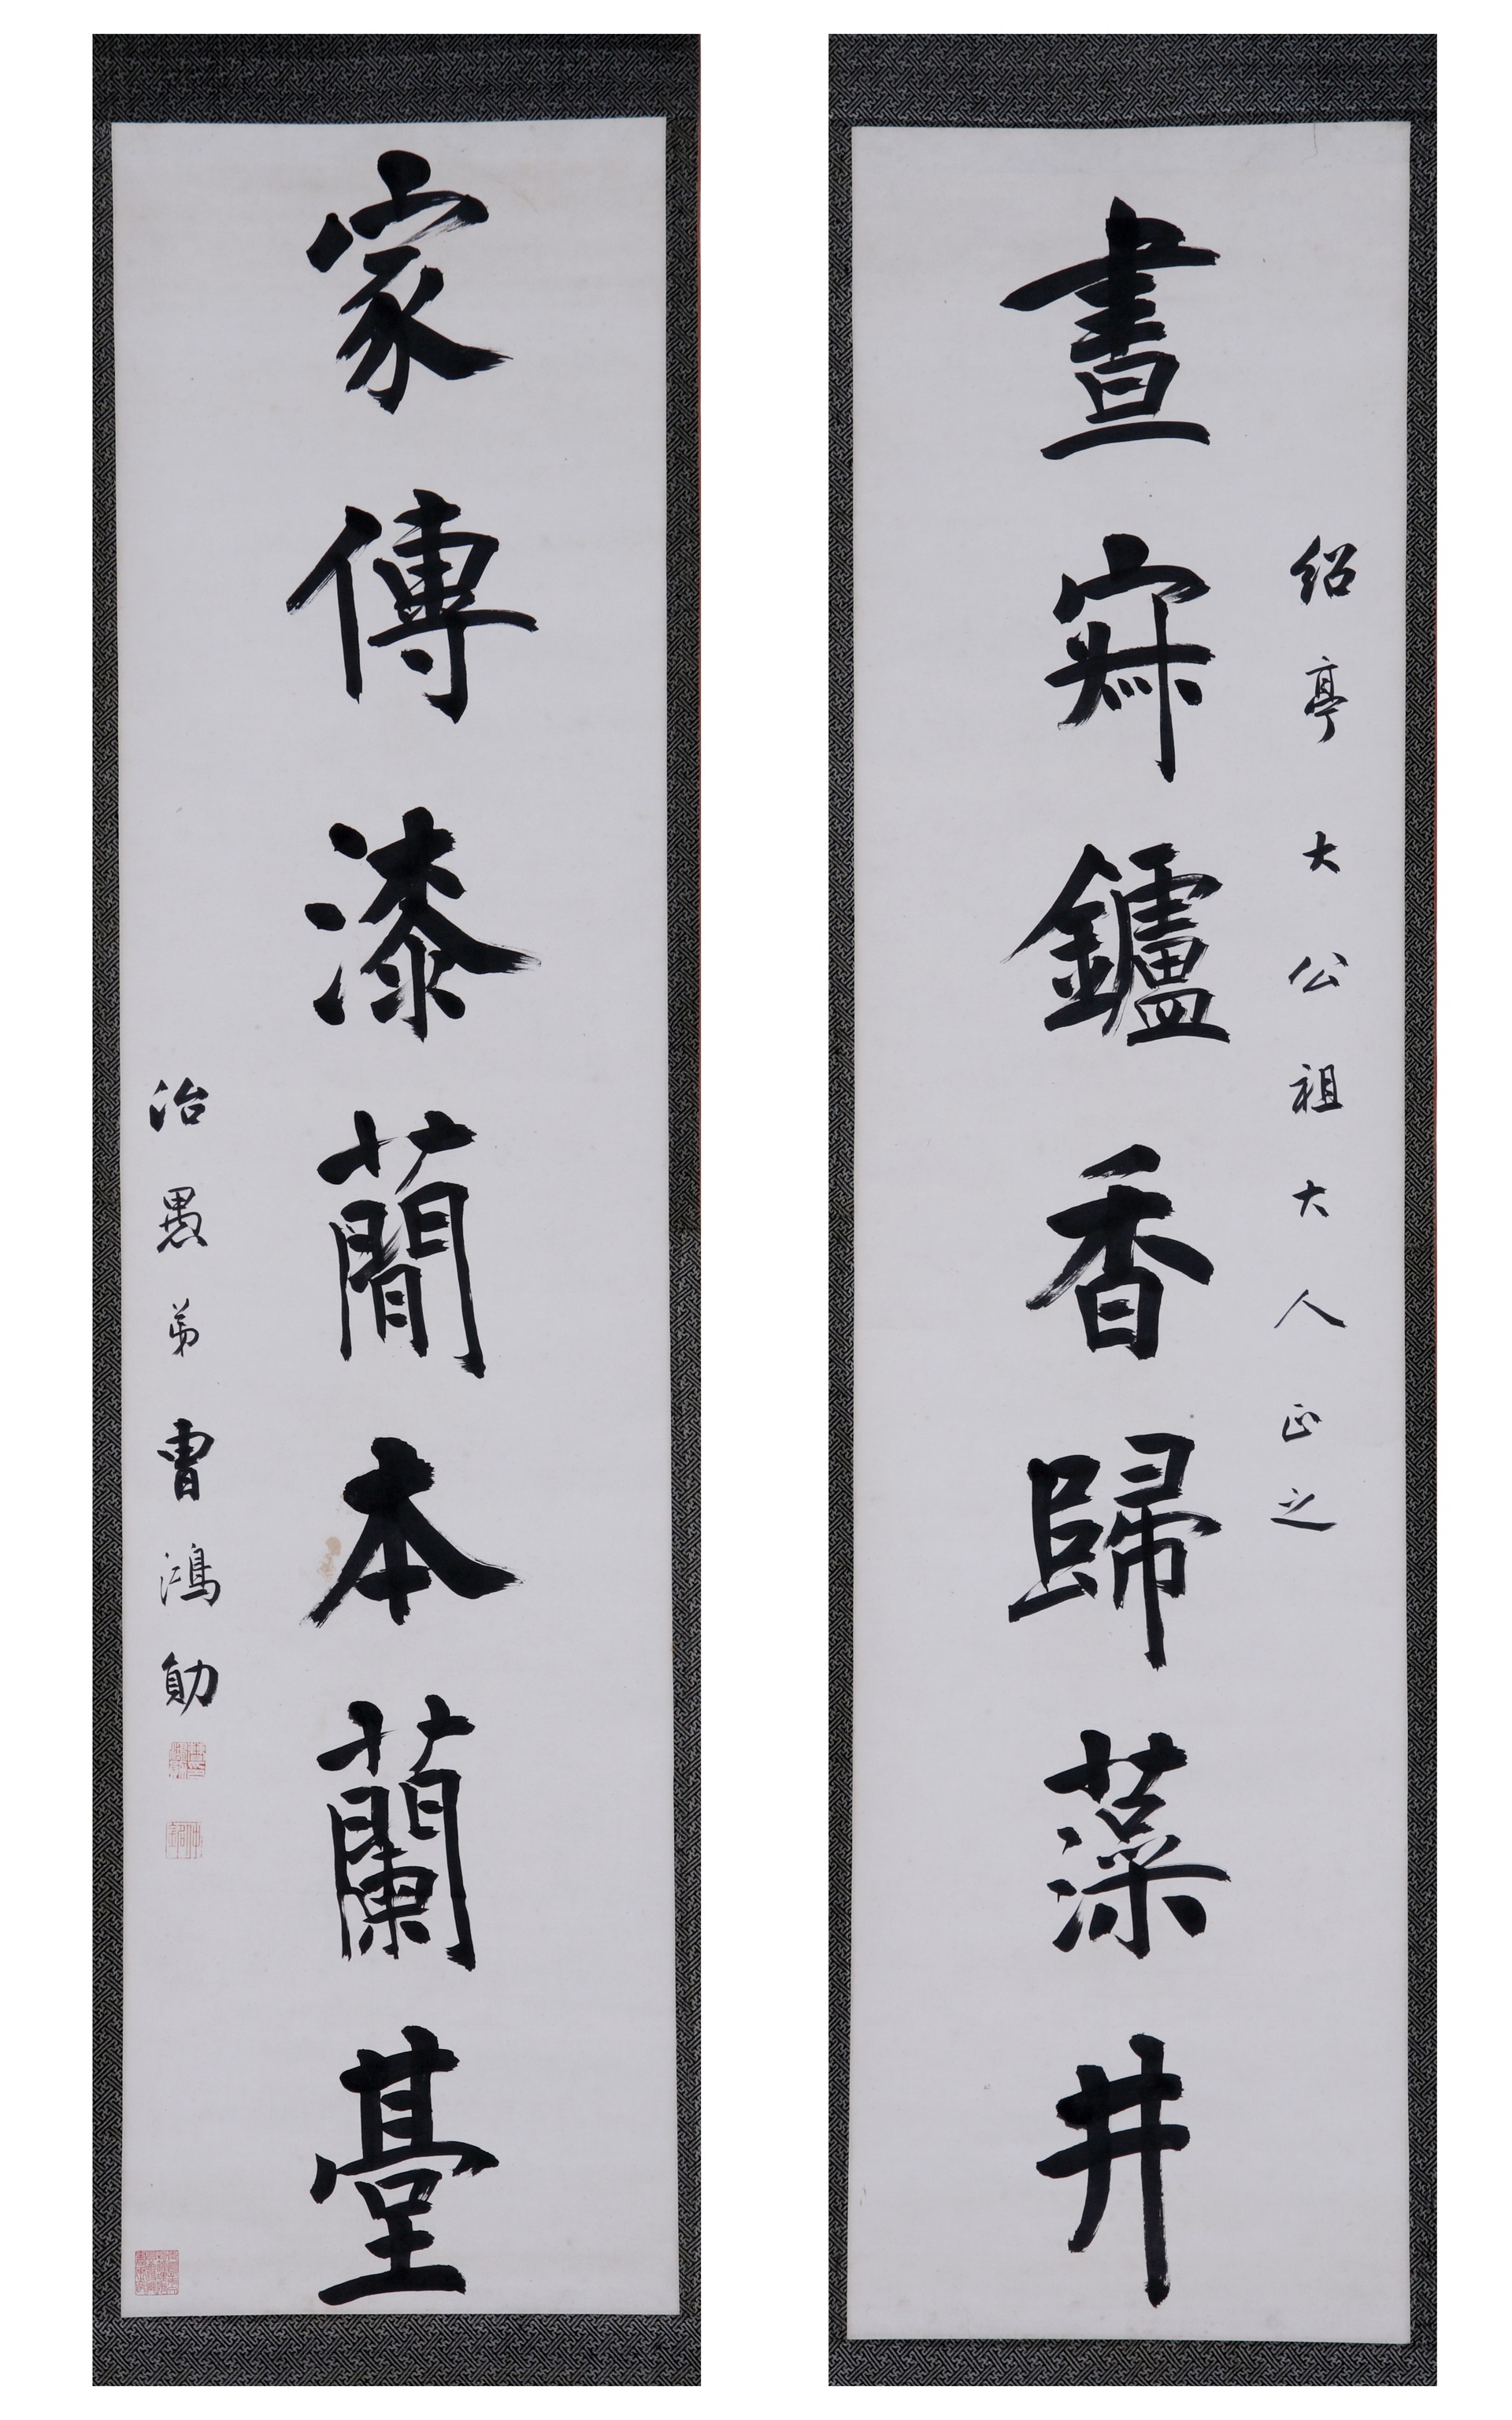 紹亭大公祖大人正之
晝寂鑪香歸藻井
家傳漆蕳本蘭臺
治愚弟曹鴻勛